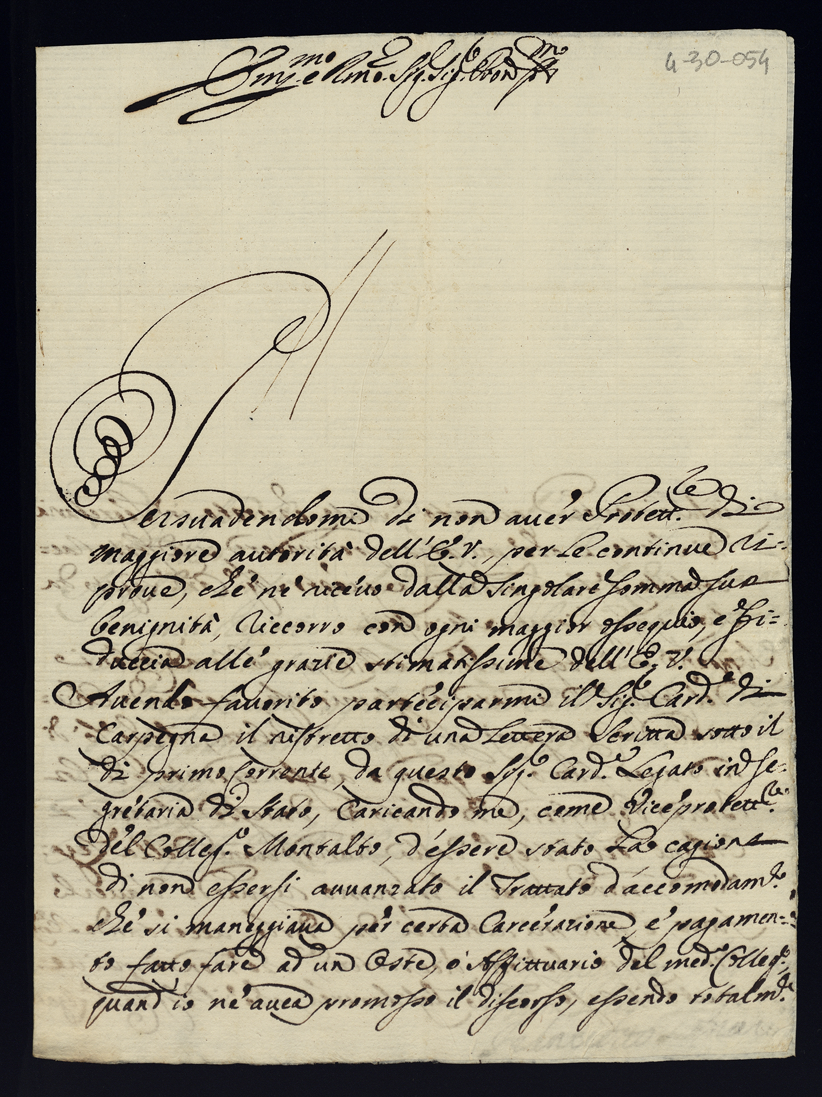 4-30-054
Em.mo e Rmo Sig. Sig.
Persuadendomi di non aver Protett.re di
maggiore autorità dell'E.V., per le continue ri=
prove, che né ricevo dalla singolare somma sua
benignità, riccorro con ogni maggior ossequio, e fi=
duccia alle grazie stimatissime dell'E.V.
Avendo favorito parteciparmi il Sig.r Card.e di
Carpegna il ristretto di una Lettera scritta sotto il
di primo Corrente, da questo Sig.r Card.e Legato in Se=
gretaria di Stato, Caricando me, come Viceprotett.re
del Colleg.o Montalto, d'essere stato la cagione
di non essersi avvanzato il Trattato d'accomodam.to
che si maneggiava per certa Carcerazione, e pagamen=
to fatto fare ad un Oste, ò Affittuario del med.o Colleg.o,
quand'io né avea promosso il discorso, essendo totalm.te